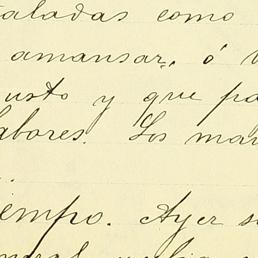 taladas como
amansar, ó
usto y que pa
labores. Los man
iempo. Ayer s